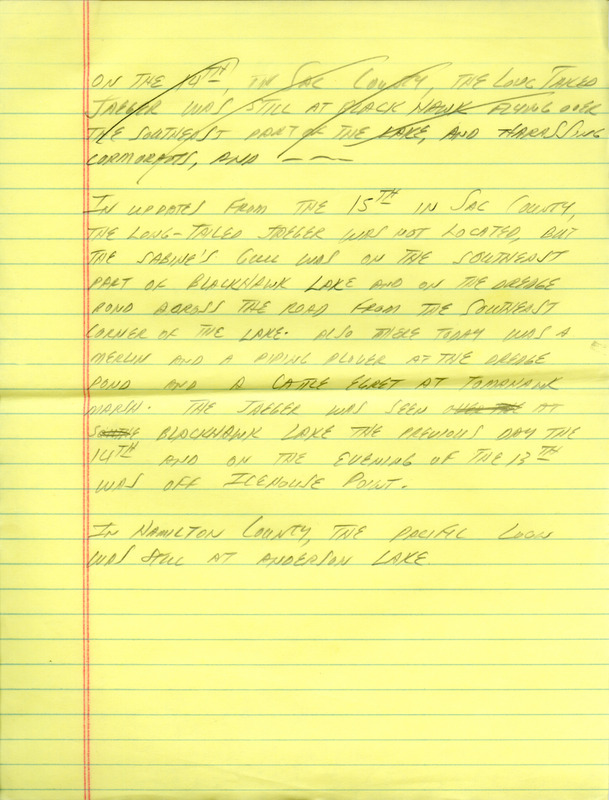 ON THE 14TH, IN SAC COUNTY, THE LONG TAILED
JAEGER WAS STILL AT BLACK HAWK FLYING OVER
THE SOUTHEAST POINT OF THE LAKE, AND HARASSING
CORMORANTS, AND — —
IN UPDATES FROM THE 15TH IN SAC COUNTY,
THE LONG-TAILED JAEGER WAS NOT LOCATED, BUT
THE SABINE'S GULL WAS ON THE SOUTHEAST
PART OF BLACKHAWK LAKE AND ON THE DREDGE
POND ACROSS THE ROAD FROM THE SOUTHEAST
CORNER OF THE LAKE. ALSO THERE TODAY WAS A
MERLIN AND A PIPING PLOVER AT THE DREDGE
POND AND A CATTLE EGRET AT TOMAHAWK
MARSH. THE JAEGER WAS SEEN OVER THE AT
BLACKHAWK LAKE THE PREVIOUS DAY THE
14TH AND ON THE EVENING OF THE 13TH
WAS OFF ICEHOUSE POINT.
IN HAMILTON COUNTY, THE PACIFIC LOON
WAS STILL AT ANDERSON LAKE